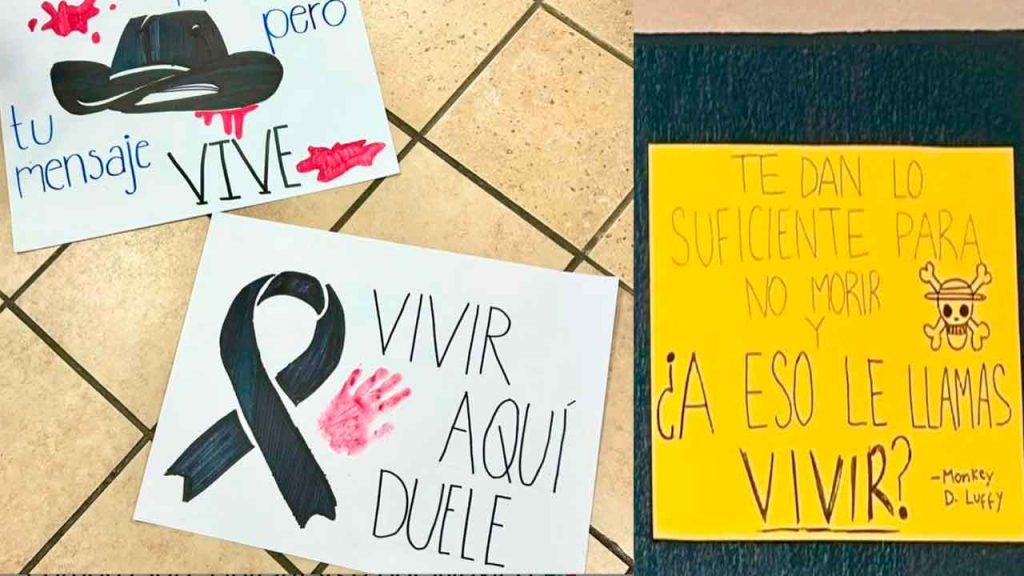 pero
tu
mensaje VIVE
VIVIR
AQUÍ
DUELE
TE DAN LO
SUFICIENTE PARA
NO MORIR
Y
¿A ESO LE LLAMAS
VIVIR?
-Monkey
D. Luffy